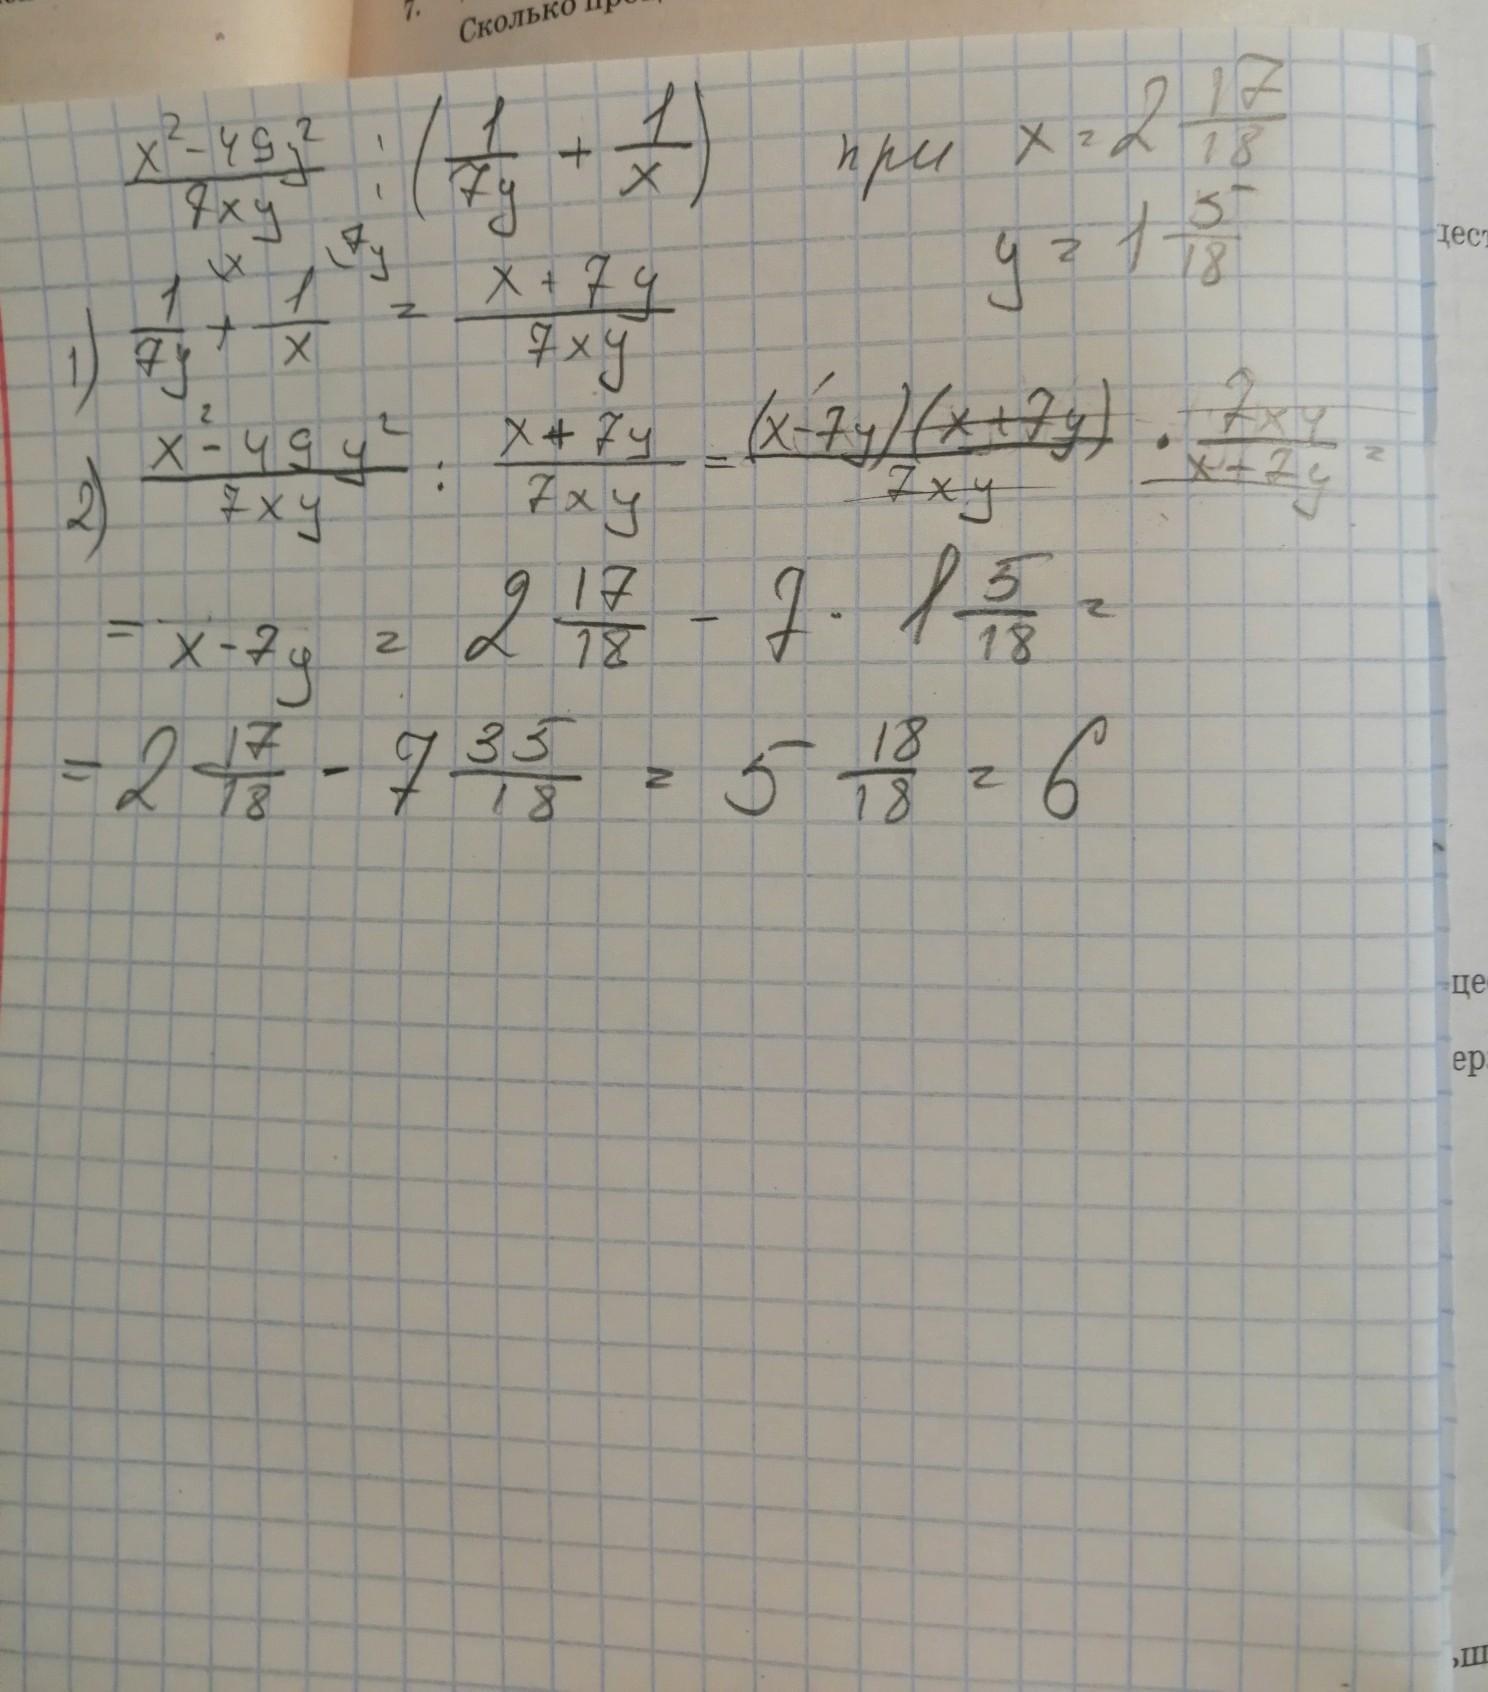 7.
Сколько
x² - 49y² / 7xy : (1/7y + 1/x) при x = 2 17/18
y = 1 5/18
1) 1/7y \x + 1/x \7y = x + 7y / 7xy
2) x² - 49y² / 7xy : x + 7y / 7xy = (x - 7y)(x + 7y) / 7xy · 7xy / x + 7y =
= x - 7y = 2 17/18 - 7 · 1 5/18 =
= 2 17/18 - 7 35/18 = 5 18/18 = 6